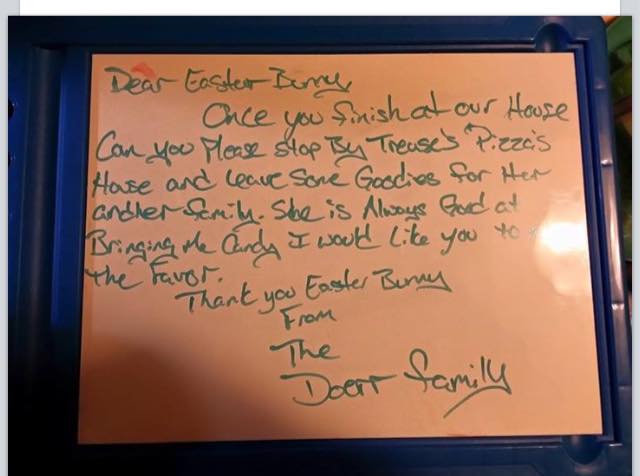 Dear Easter Bunny
Once you finish at our House
Can you Please stop By Trease's Pizza's
House and leave Some Goodies for Her
and her family. She is Always Good at
Bringing Me Candy I would Like you to
the favor.
Thank you Easter Bunny
From
The
Doerr family